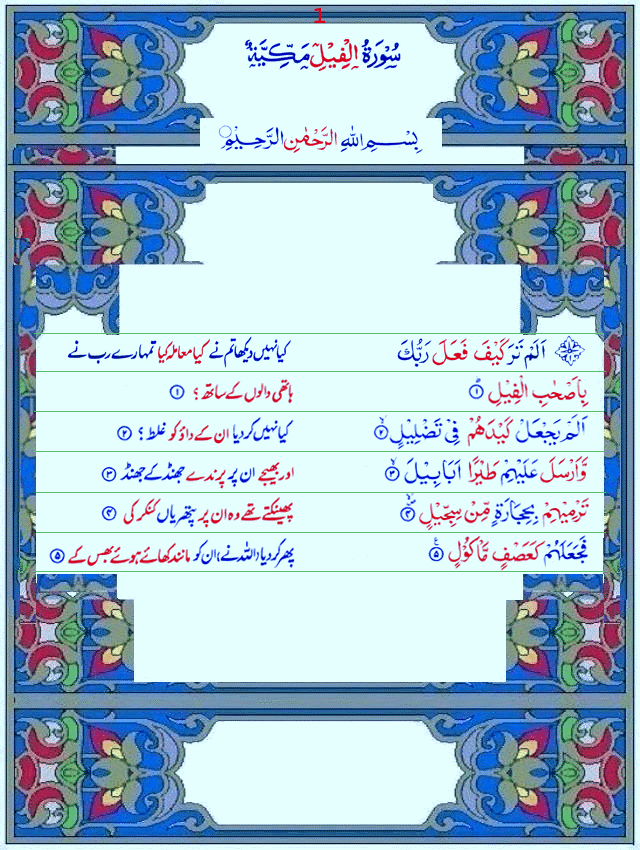 1
سُوْرَةُ الْفِيْلِ مَكِّيَّةٌ
بِسْمِ اللّٰهِ الرَّحْمٰنِ الرَّحِيْمِ
اَلَمْ تَرَ كَيْفَ فَعَلَ رَبُّكَ کیا نہیں دیکھا تم نے کیا معاملہ کیا تمہارے رب نے
بِاَصْحٰبِ الْفِيْلِ ۱ ہاتھی والوں کے ساتھ؟ ۱
اَلَمْ يَجْعَلْ كَيْدَهُمْ فِيْ تَضْلِيْلٍ ۲ کیا نہیں کر دیا ان کے داؤ کو غلط؟ ۲
وَّاَرْسَلَ عَلَيْهِمْ طَيْرًا اَبَابِيْلَ ۳ اور بھیجے ان پر پرندے جھنڈ کے جھنڈ ۳
تَرْمِيْهِمْ بِحِجَارَةٍ مِّنْ سِجِّيْلٍ ۴ پھینکتے تھے وہ ان پر پتھریاں کنکر کی ۴
فَجَعَلَهُمْ كَعَصْفٍ مَّاْكُوْلٍ ۵ پھر کر دیا (اللہ نے) ان کو مانند کھائے ہوئے بھس کے ۵